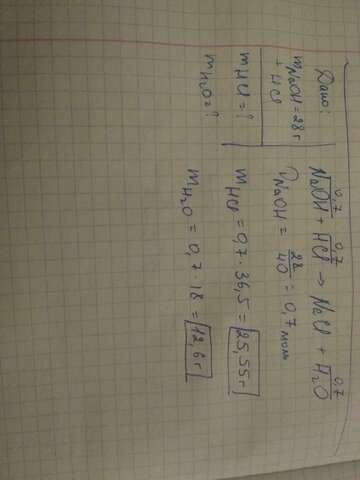 Дано:
mNaOH = 28г
+ HCl
mHCl = ?
mH₂O = ?
0,7 0,7 0,7
NaOH + HCl → NaCl + H₂O
νNaOH = 28/40 = 0,7 моль
mHCl = 0,7 · 36,5 = 25,55г
mH₂O = 0,7 · 18 = 12,6г